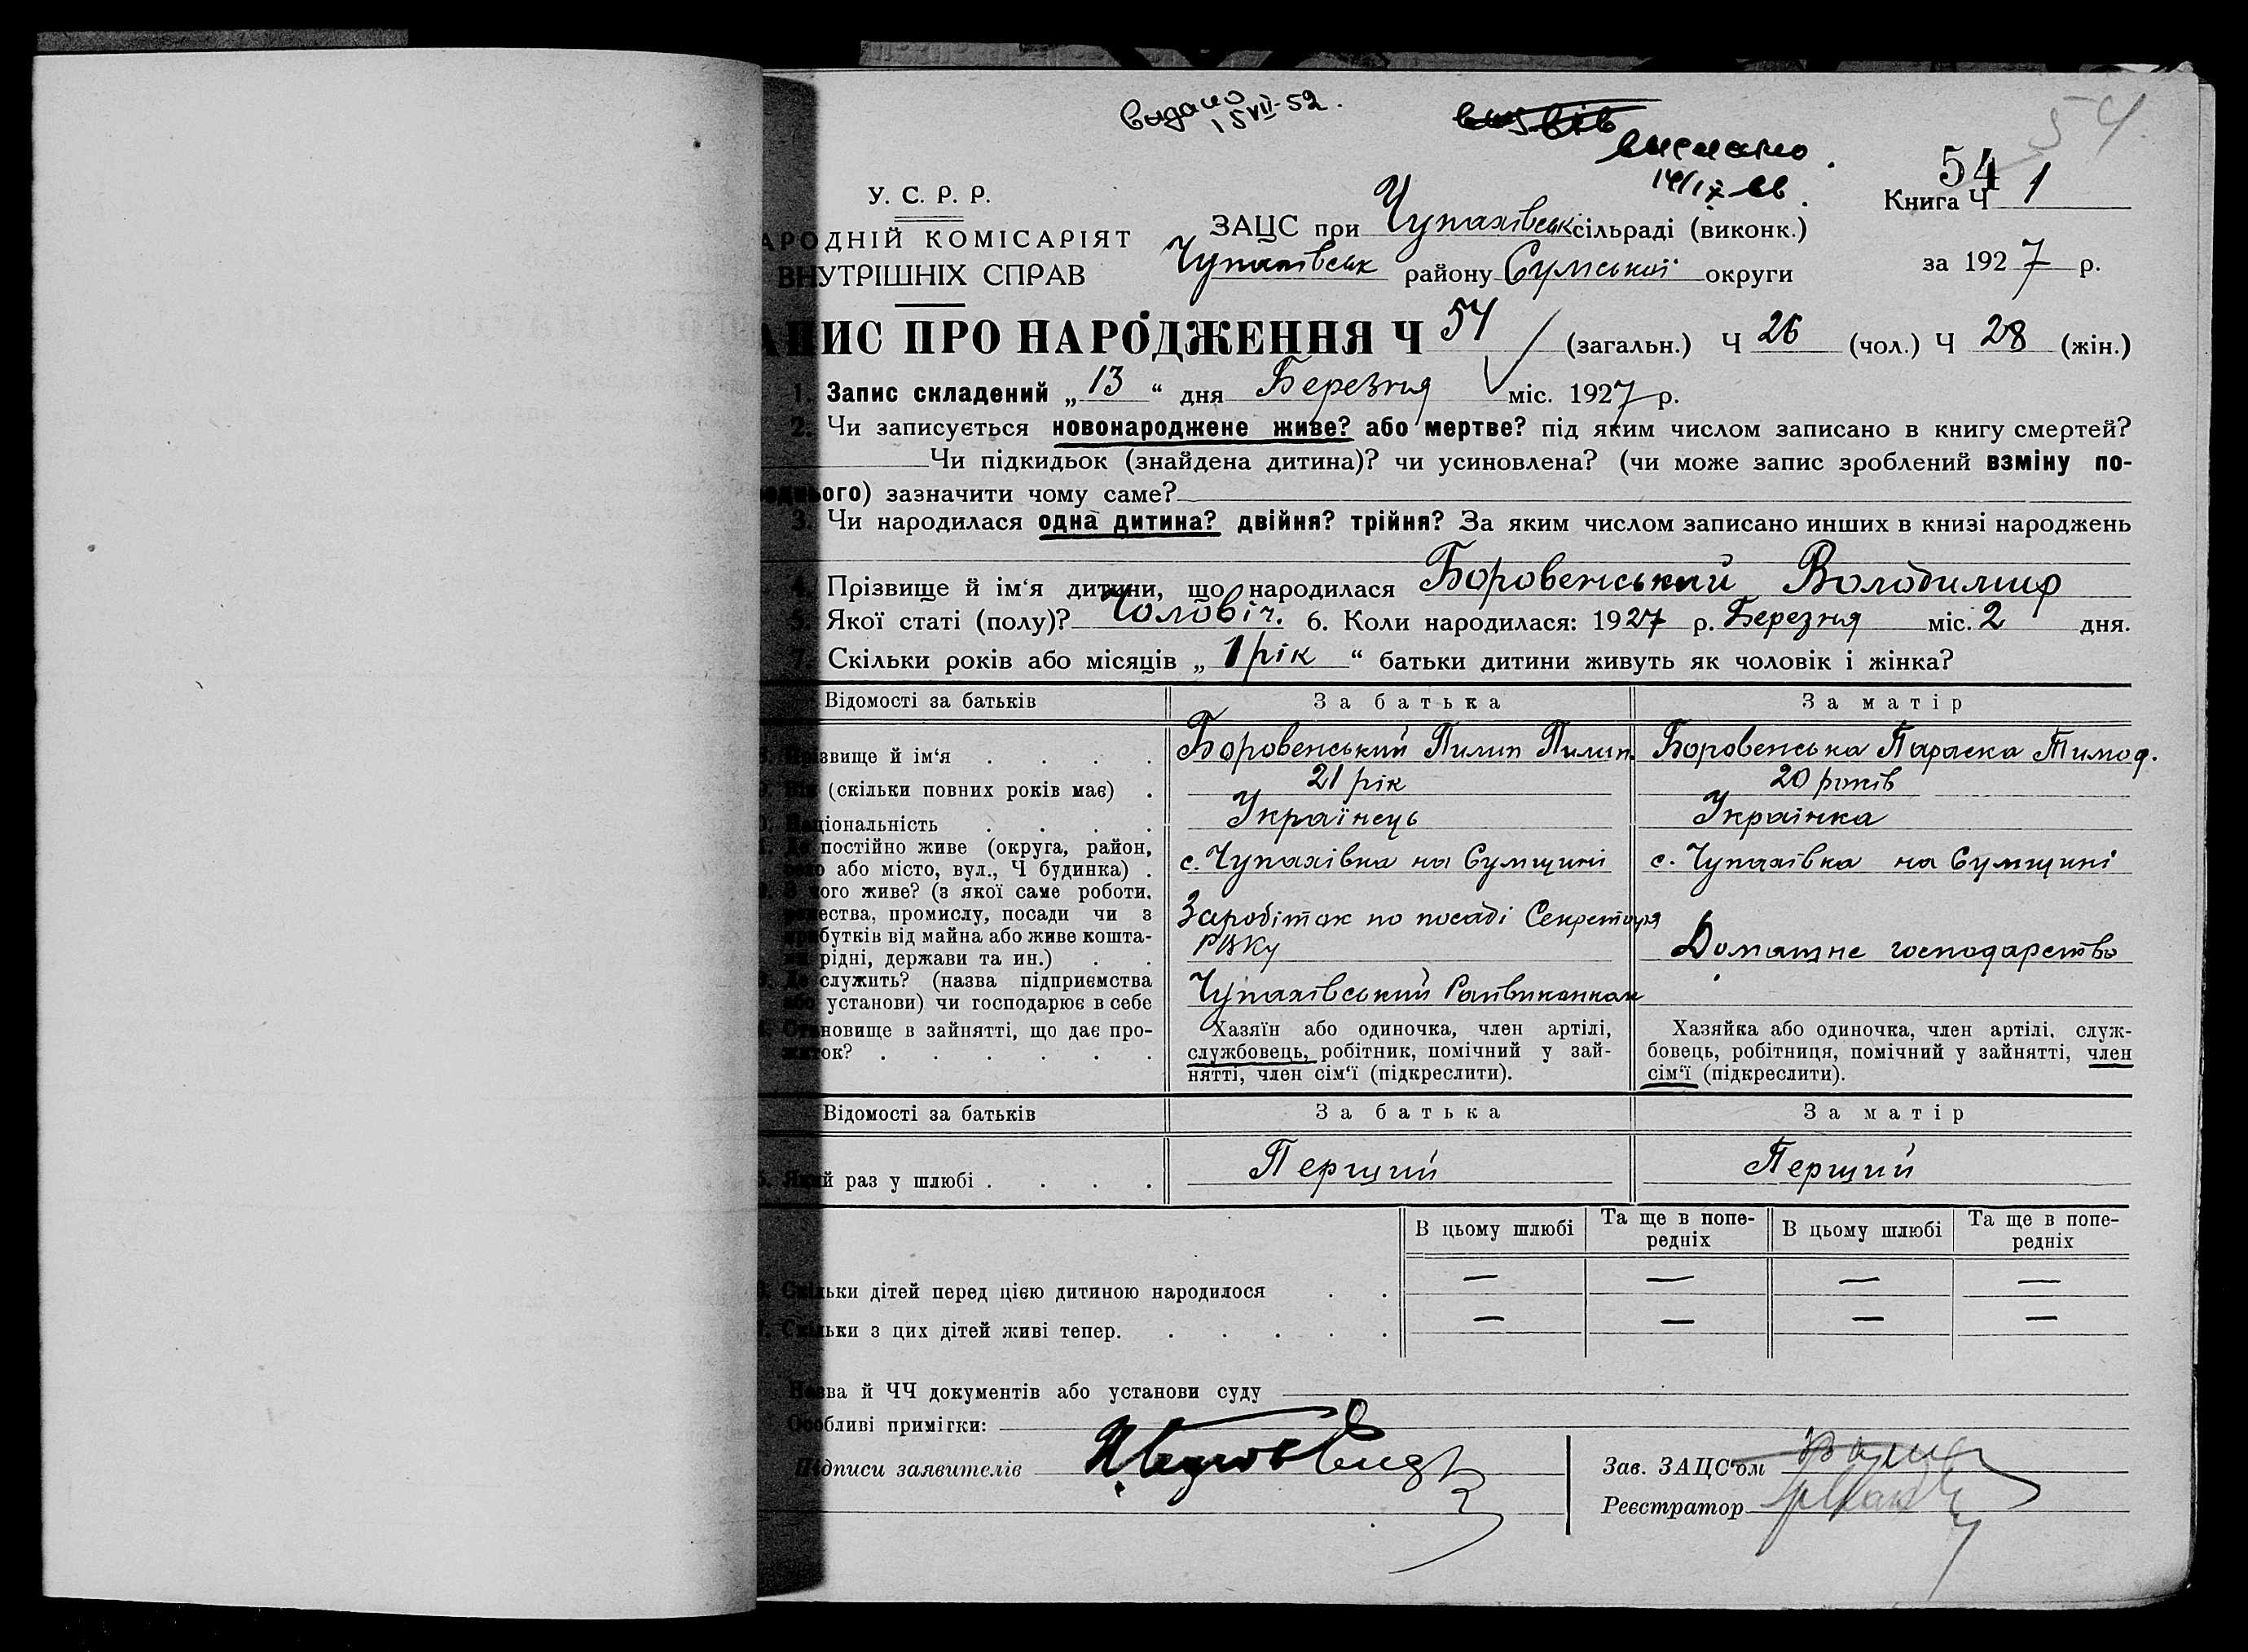 видано
15 VII-52.
вислано.
54.
54
У. С. Р. Р.
АРОДНІЙ КОМІСАРІЯТ
ВНУТРІШНІХ СПРАВ
Книга Ч 1
ЗАЦС при Чупахівськ сільраді (виконк.)
Чупахівськ району Сумської округи
за 1927 р.
АПИС ПРО НАРОДЖЕННЯ Ч 54 (загальн.) Ч 26 (чол.) Ч 28 (жін.)
1. Запис складений „ 13 “ дня Березня міс. 1927 р.
2. Чи записується новонароджене живе? або мертве? під яким числом записано в книгу смертей?
Чи підкидьок (знайдена дитина)? чи усиновлена? (чи може запис зроблений взміну по-
реднього) зазначити чому саме?
3. Чи народилася одна дитина? двійня? трійня? За яким числом записано инших в книзі народжень
4. Прізвище й ім‘я дитини, що народилася Боровенський Володимир
5. Якої статі (полу)? Чоловіч. 6. Коли народилася: 1927 р. Березня міс. 2 дня.
7. Скільки років або місяців „ 1 рік “ батьки дитини живуть як чоловік і жінка?
Відомості за батьків За батька За матір
8. Прізвище й ім‘я . . . . Боровенський Пилип Пилип. Боровенська Параска Тимоф.
9. Вік (скільки повних років має) . 21 рік 20 років
10. Національність . . . . Українець Українка
11. Де постійно живе (округа, район,
село або місто, вул., Ч будинка) . с. Чупахівка на Сумщині с. Чупахівка на Сумщині
12. З чого живе? (з якої саме роботи,
ремества, промислу, посади чи з
прибутків від майна або живе кошта-
ми рідні, держави та ин.) . . Заробіток по посаді Секретаря
РВКу Домашнє господарство
13. Де служить? (назва підприємства
або установи) чи господарює в себе Чупахівський Райвиконком
14. Становище в зайнятті, що дає про-
житок? . . . . . .
Хазяїн або одиночка, член артілі,
службовець, робітник, помічний у зай-
нятті, член сім‘ї (підкреслити).
Хазяйка або одиночка, член артілі, служ-
бовець, робітниця, помічний у зайнятті, член
сім‘ї (підкреслити).
Відомості за батьків За батька За матір
15. Який раз у шлюбі . . . . Перший Перший
В цьому шлюбі Та ще в попе-
редніх В цьому шлюбі Та ще в попе-
редніх
16. Скільки дітей перед цією дитиною народилося . . — — — —
17. Скільки з цих дітей живі тепер. . . . . . — — — —
Назва й ЧЧ документів або установи суду
Особливі примітки:
Підписи заявителів
Зав. ЗАЦС‘ом
Реєстратор